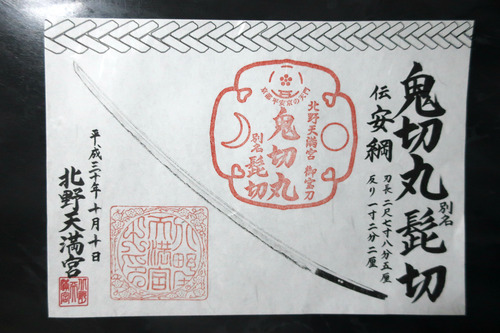 鬼切丸 別名 髭切
伝 安綱
刃長 二尺七寸八分五厘
反り 一寸二分二厘
京都平安京の天門
北野天満宮 御宝刀
鬼切丸
別名 髭切
平成三十年十月十日
北野天満宮